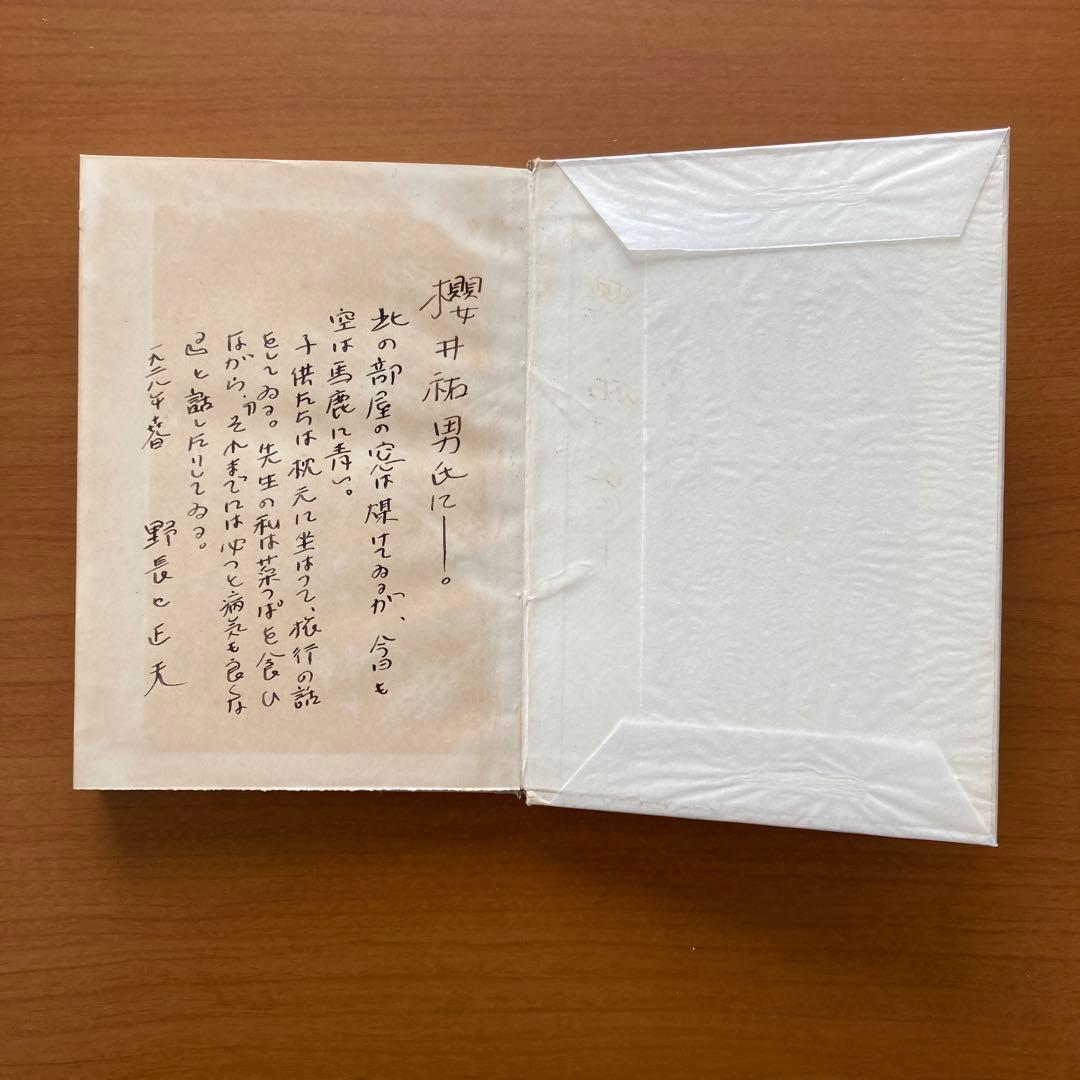 櫻井祐男氏に――。
此の部屋の窓は煤けてゐるが、今日も
空は馬鹿に青い。
子供たちは枕元に坐はつて、旅行の話
をしてゐる。先生の私は菜つぱを食ひ
ながら、それまでには必つと病気も良くな
ると話したりしてゐる。
一九二八年春
野長正夫